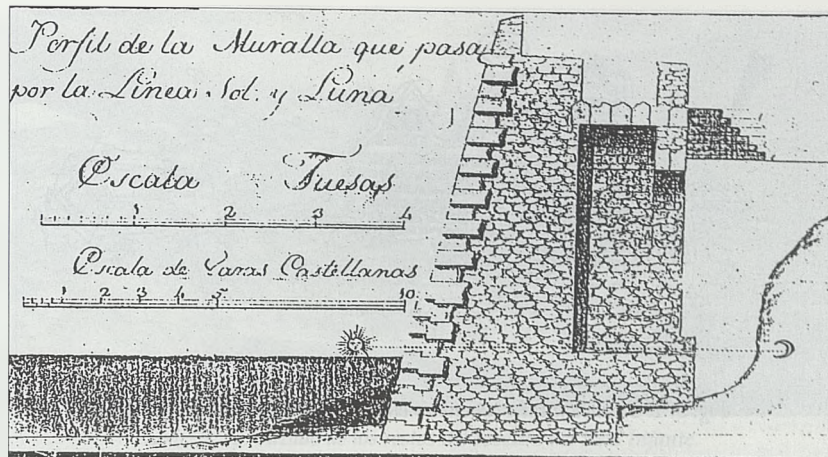 Perfil de la Muralla que pasa
por la Linea Sol y Luna
Escala Tuesas
1 2 3 4
Escala de Varas Castellanas
1 2 3 4 5 10